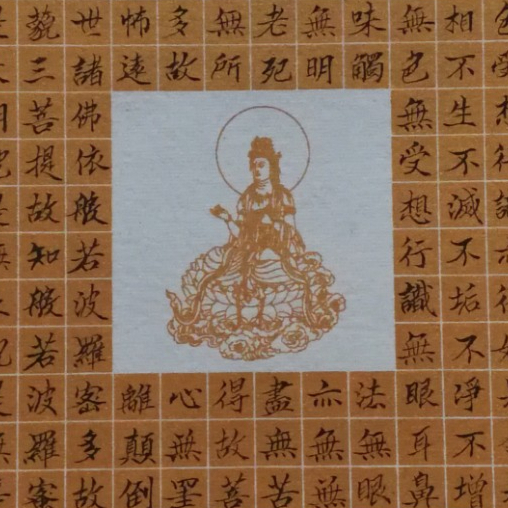 相不生不滅不垢不淨不增
無色無受想行識無眼耳鼻
味觸法無眼
無明亦無無
老死盡無苦
無所得故菩
多故心無罣
怖遠離顛倒
世諸佛依般若波羅蜜多故
藐三菩提故知般若波羅蜜